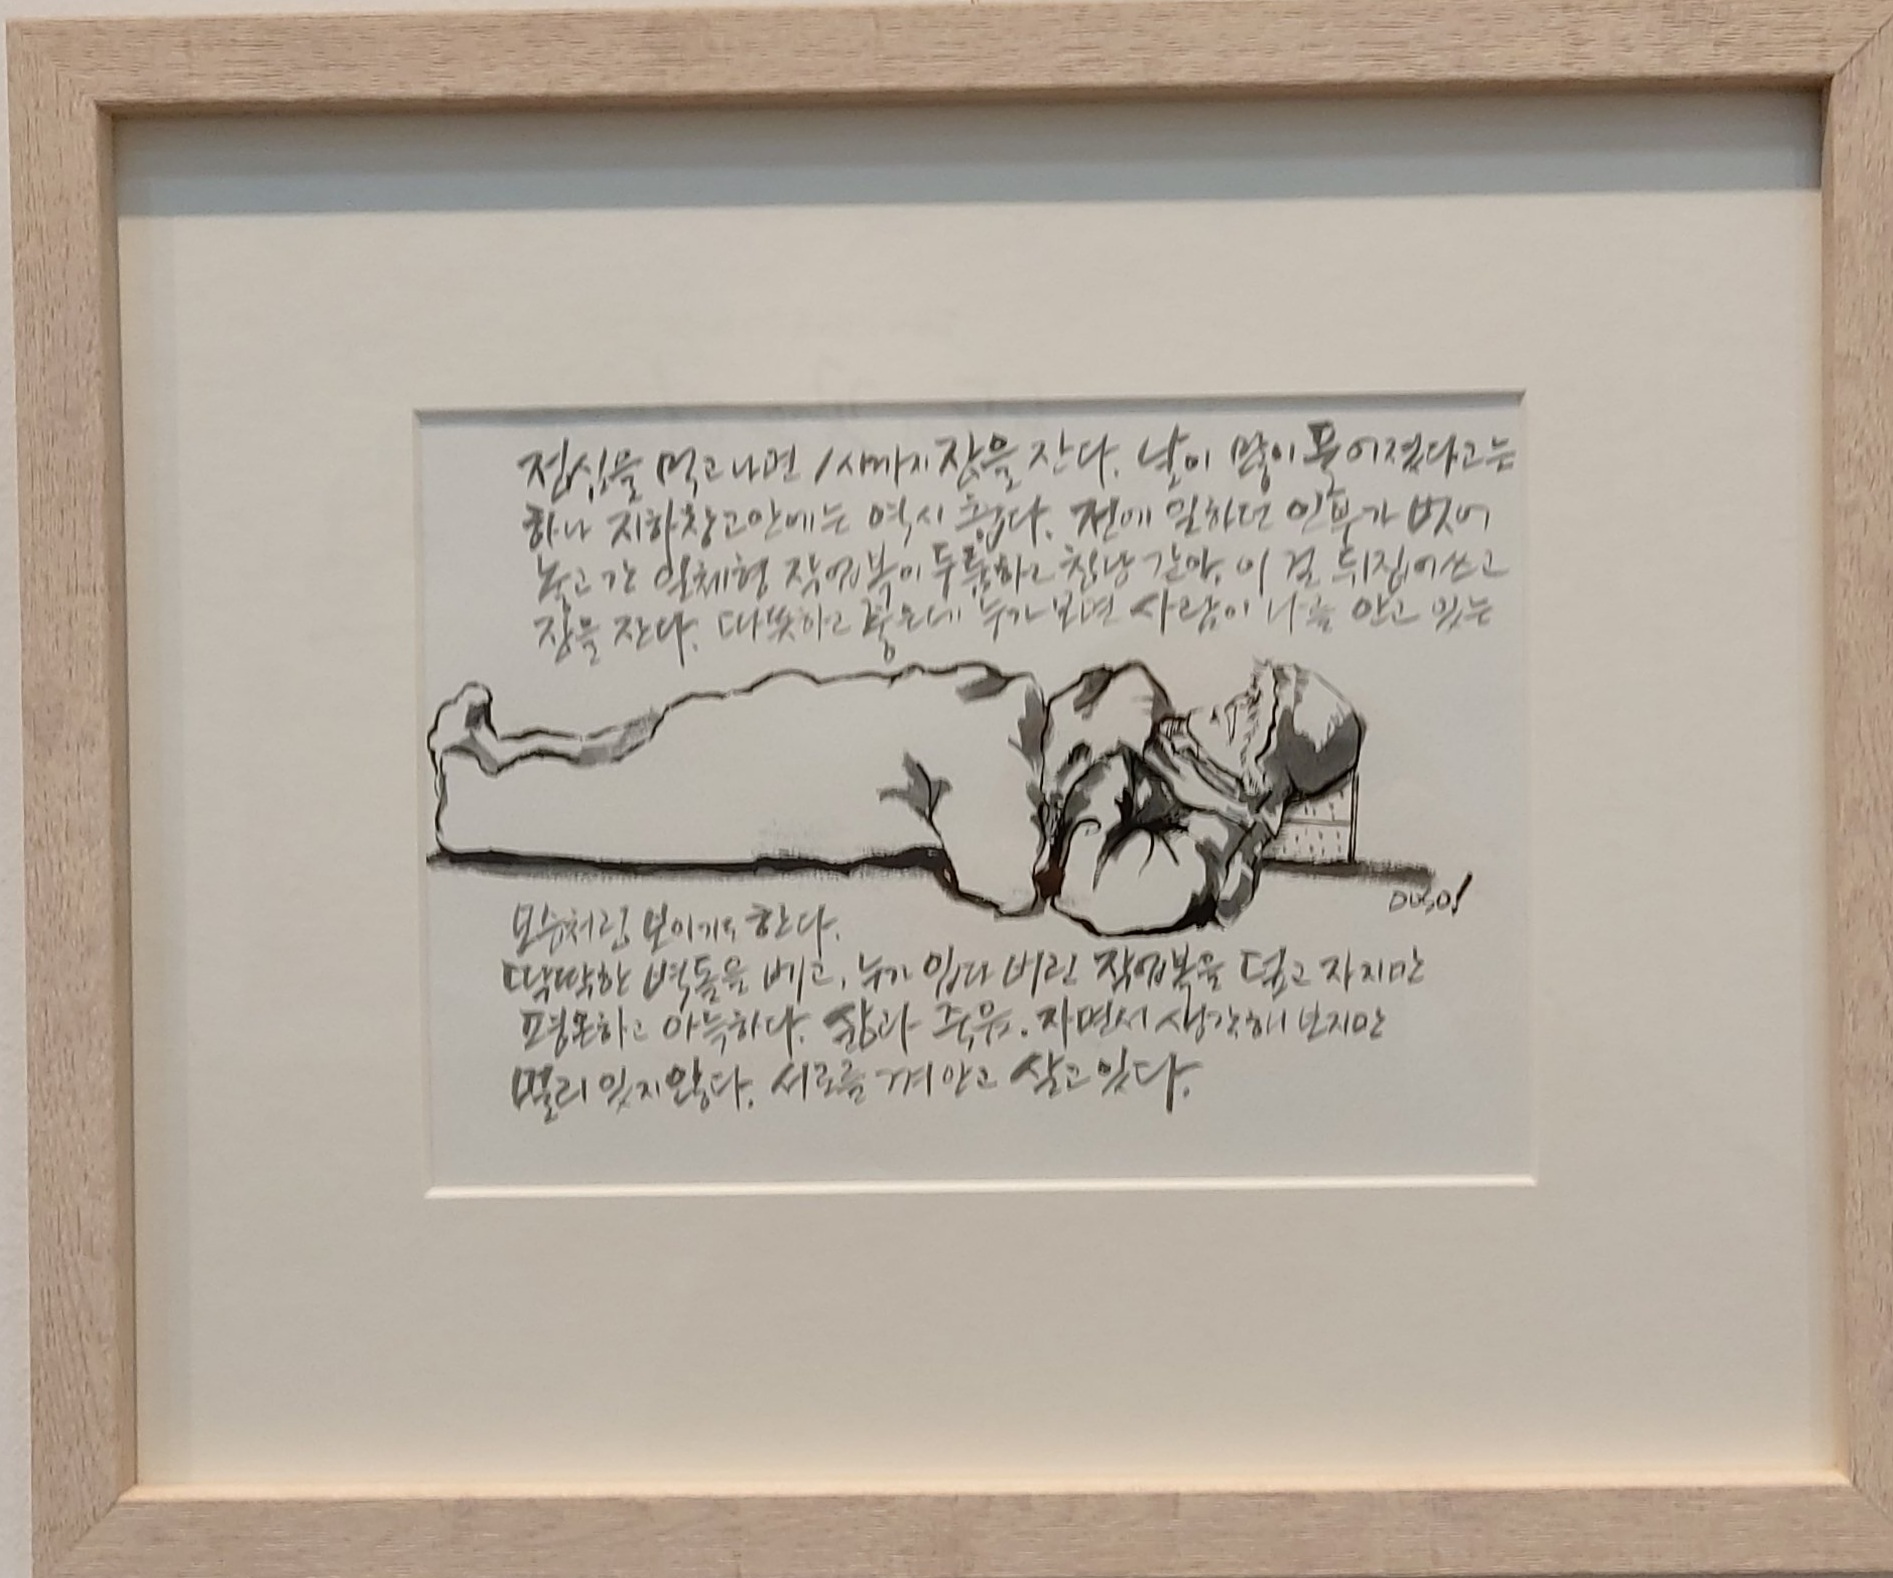 점심을 먹고나면 1시까지 잠을 잔다. 날이 많이 풀어졌다고는
하나 지하창고안에는 역시 춥다. 전에 일하던 인부가 벗어
놓고 간 일체형 작업복이 두툼하고 침낭 같아, 이 걸 뒤집어쓰고
잠을 잔다. 따뜻하고 좋은데 누가 보면 사람이 나를 안고 있는
모습처럼 보이기도 한다.
딱딱한 벽돌을 베고, 누가 입다 버린 작업복을 덮고 자지만
평온하고 아늑하다. 삶과 죽음. 자면서 생각해 보지만
멀리 있지않다. 서로를 껴안고 살고있다.